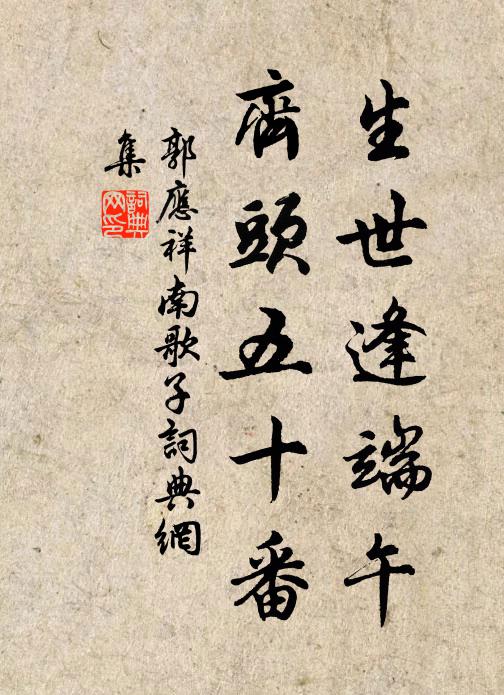 生世逢端午
齊頭五十番
郭應祥南歌子詞典網
集
詞典
网印